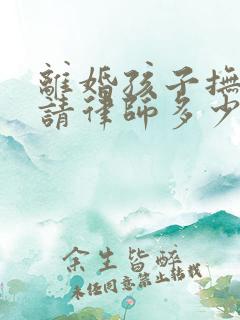 離婚孩子撫
請律師多少
余生皆醉
未经同意禁止转载